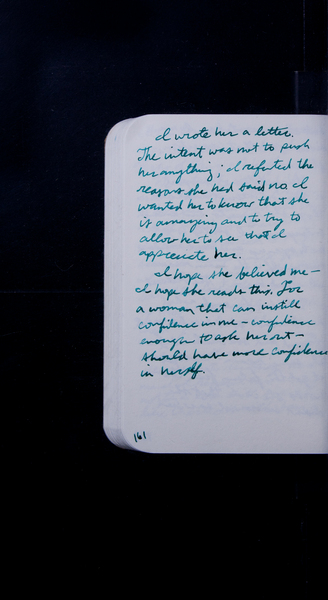 I wrote her a letter.
The intent was not to push
her anything; I refuted the
reasons she had said no. I
wanted her to know that she
is amazing and to try to
allow her to see that I
appreciate her.
I hope she believed me—
I hope she reads this. For
a woman that can instill
confidence in me—confidence
enough to ask her out—
should have more confidence
in herself.
161